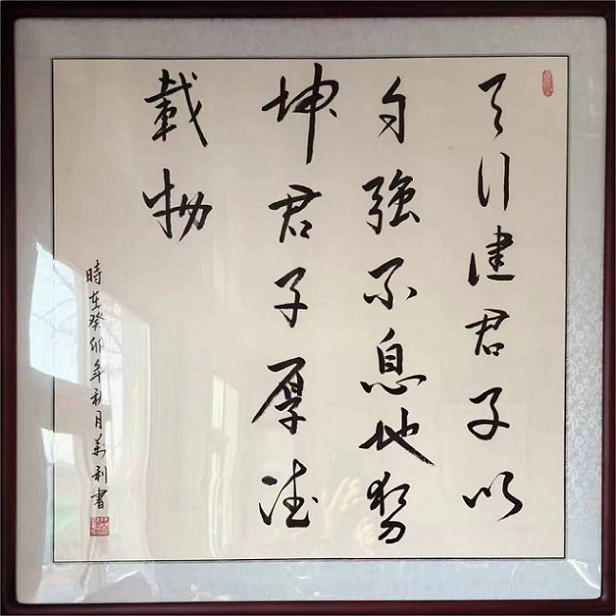 天行健君子以
自強不息地势
坤君子厚德
載物
時在癸卯年秋月萬利書